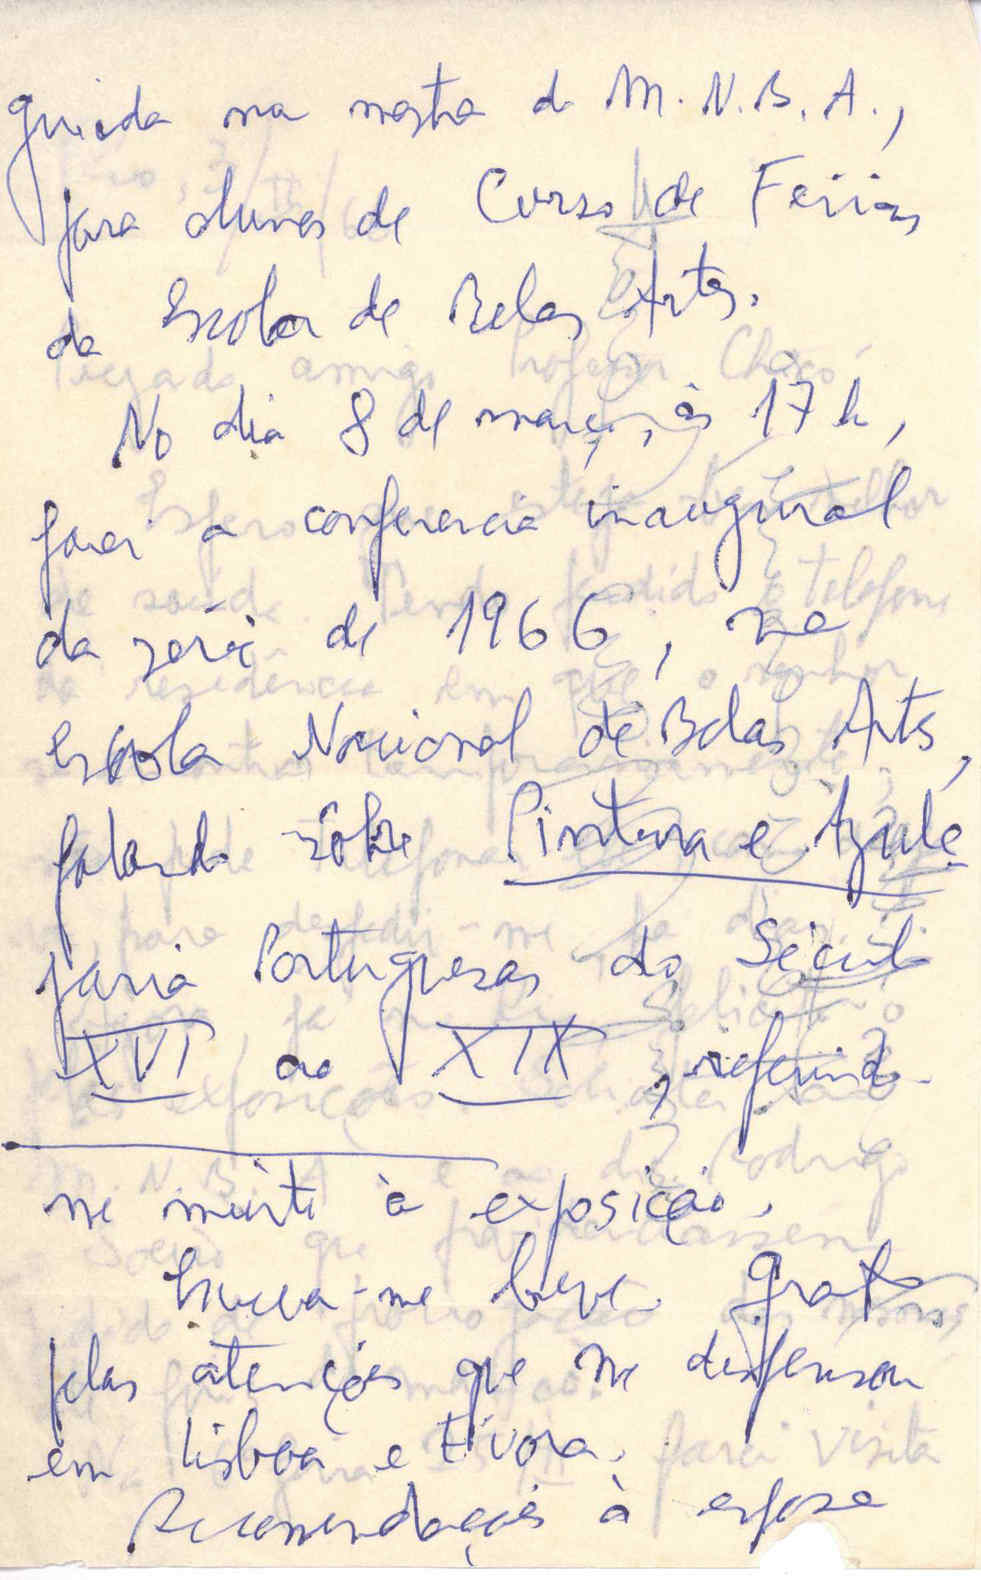 guiada na mostra do M.N.B.A.,
para alunos do Curso de Férias
da Escola de Belas Artes.
No dia 8 de março, às 17 h,
farei a conferencia inaugural
da série de 1966, na
Escola Nacional de Belas Artes,
falando sôbre Pintura e Azule
jaria Portuguesas do Século
XVI ao XIX, referindo-
me muito à exposição.
Escreva-me breve. Grato
pelas atenções que me dispensou
em Lisboa e Évora.
Recomendações à esposa